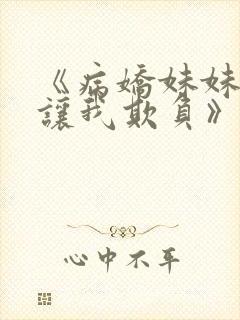 《病嬌妹妹
讓我欺負》
心中不平